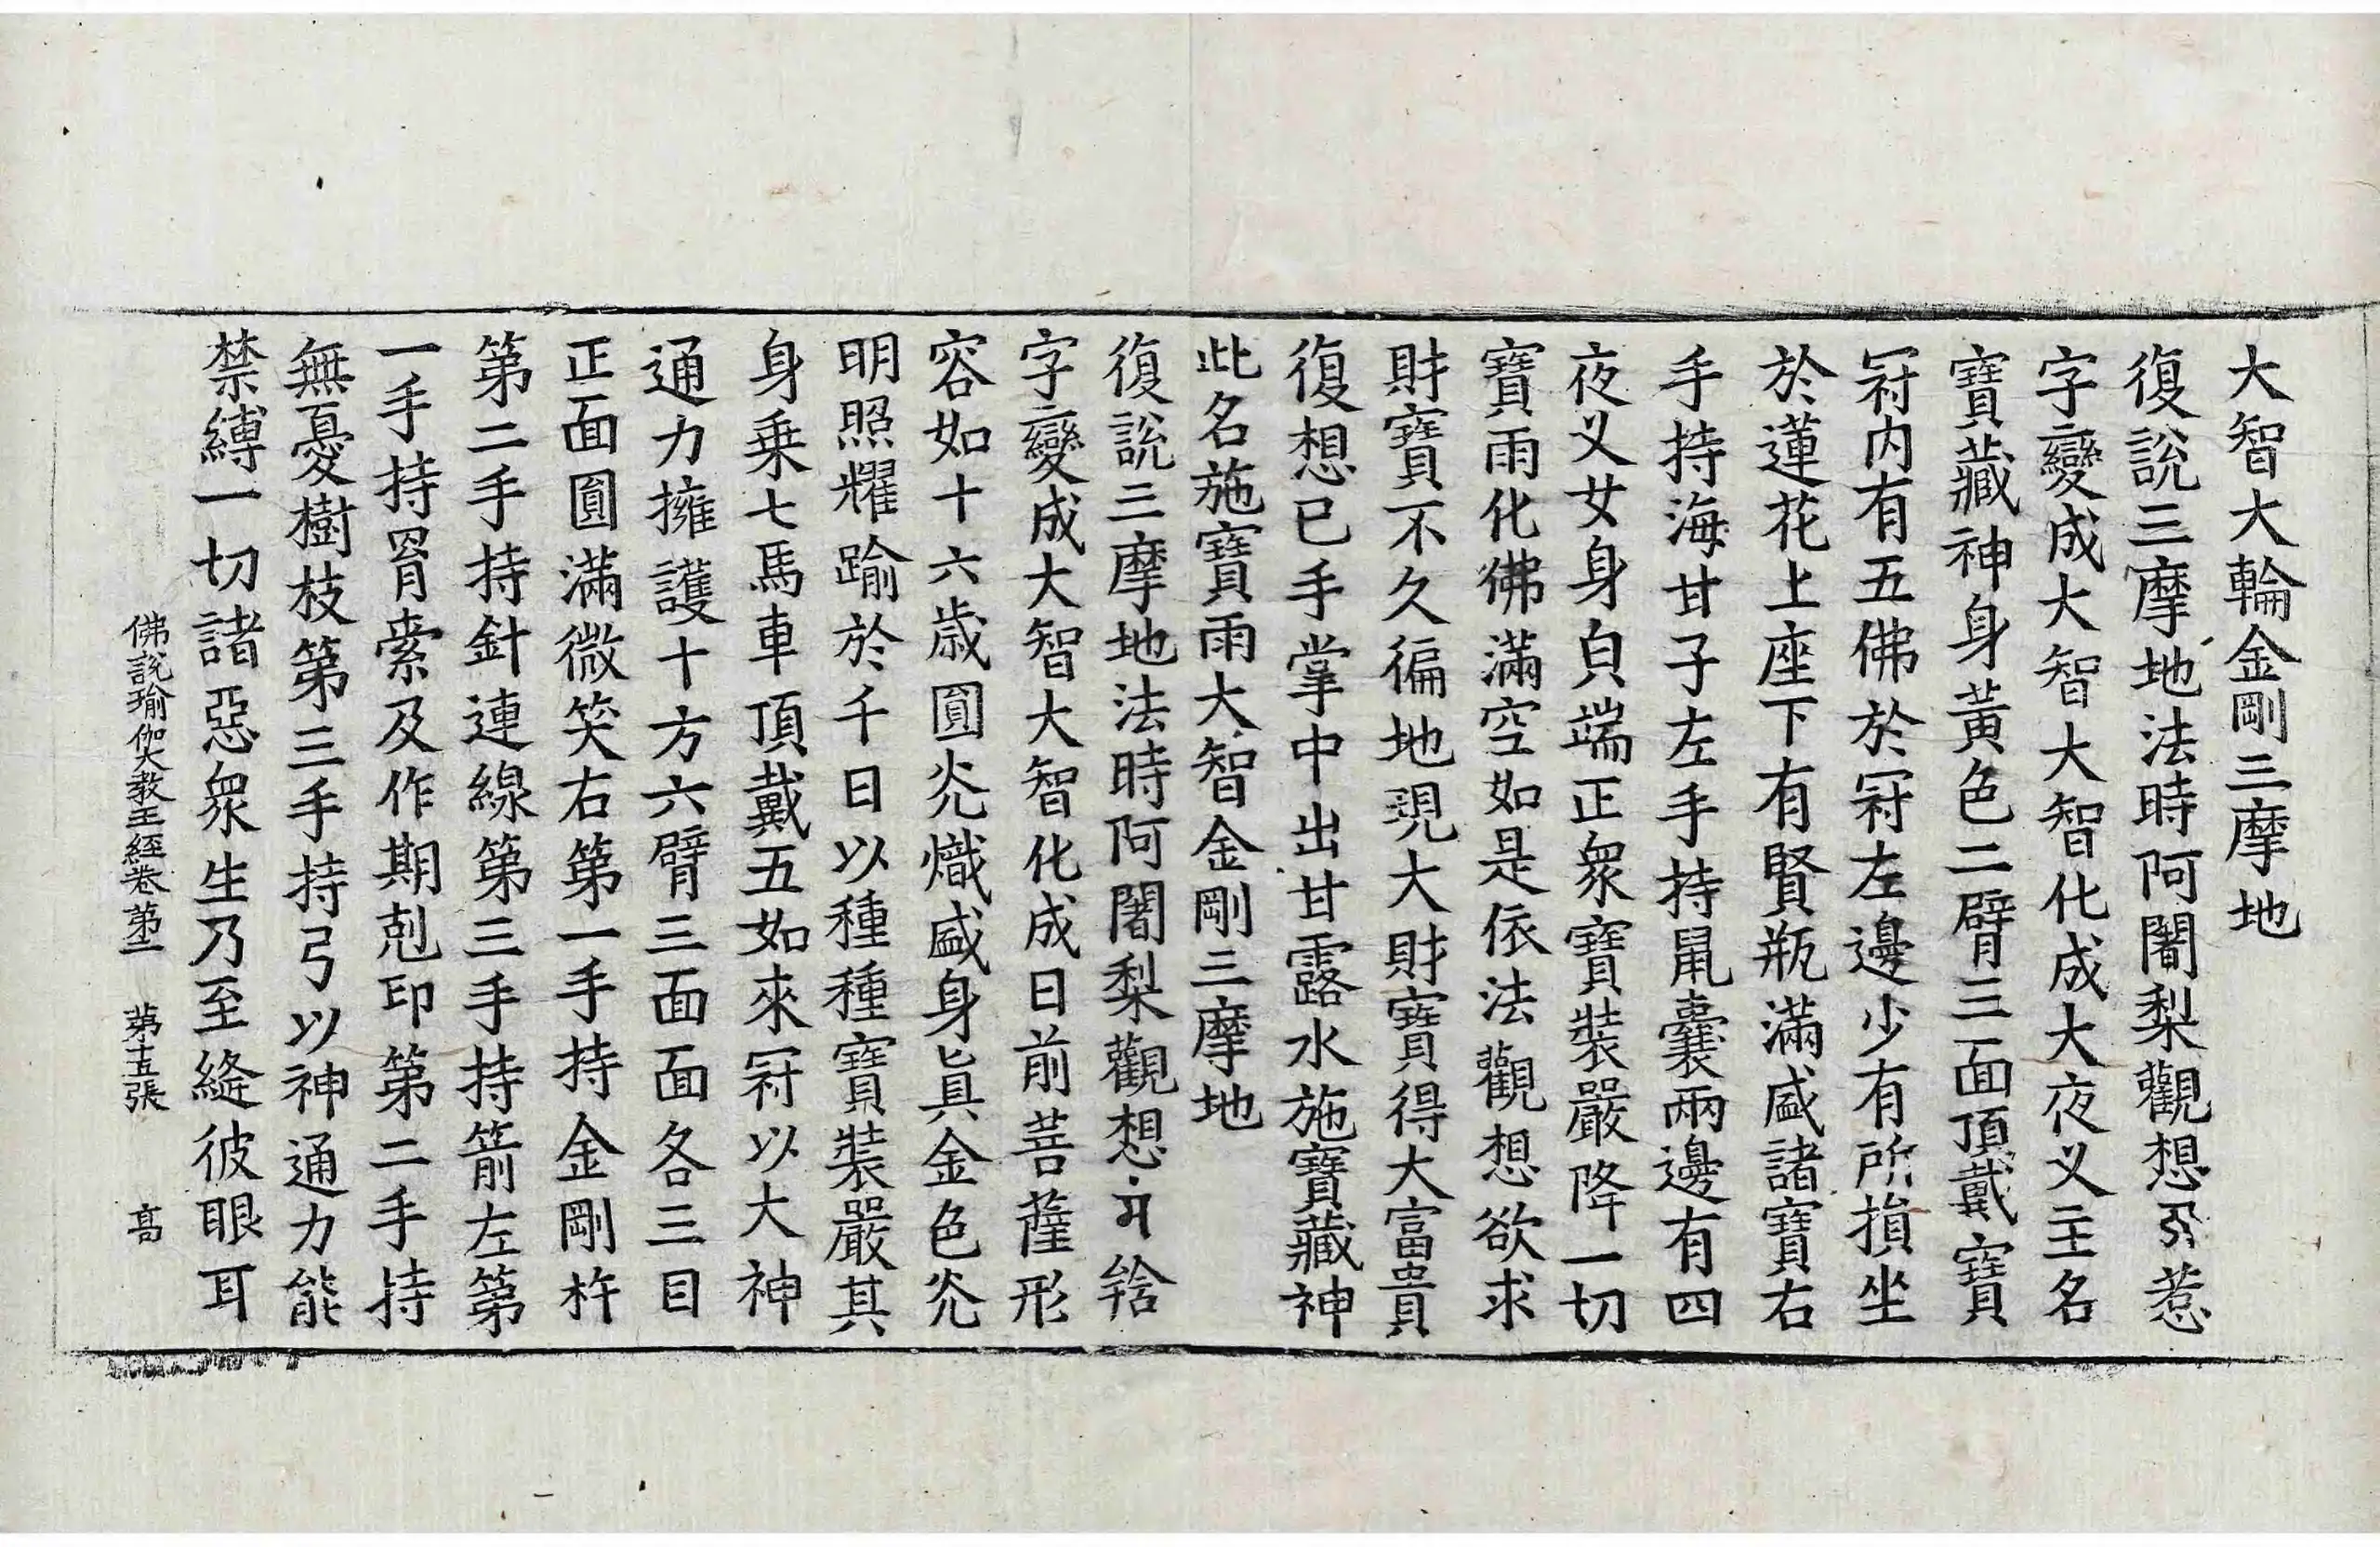 大智大輪金剛三摩地
復說三摩地法時阿闍梨觀想惹
字變成大智大智化成大夜乂主名
寶藏神身黃色二臂三面頂戴寶
冠內有五佛於冠左邊少有所損坐
於蓮花上座下有賢瓶滿盛諸寶右
手持海甘子左手持鼠囊兩邊有四
夜乂女身皃端正衆寶裝嚴降一切
寶雨化佛滿空如是依法觀想欲求
財寶不久徧地現大財寶得大富貴
復想已手掌中出甘露水施寶藏神
此名施寶雨大智金剛三摩地
復說三摩地法時阿闍梨觀想𤙖
字變成大智大智化成日前菩薩形
容如十六歲圓光熾盛身真金色光
明照耀踰於千日以種種寶裝嚴其
身乘七馬車頂戴五如來冠以大神
通力擁護十方六臂三面面各三目
正面圓滿微笑右第一手持金剛杵
第二手持針連線第三手持箭左第
一手持罥索及作期剋印第二手持
無憂樹枝第三手持弓以神通力能
禁縛一切諸惡衆生乃至縫彼眼耳
佛說瑜伽大教王經卷第二 第十五張 高